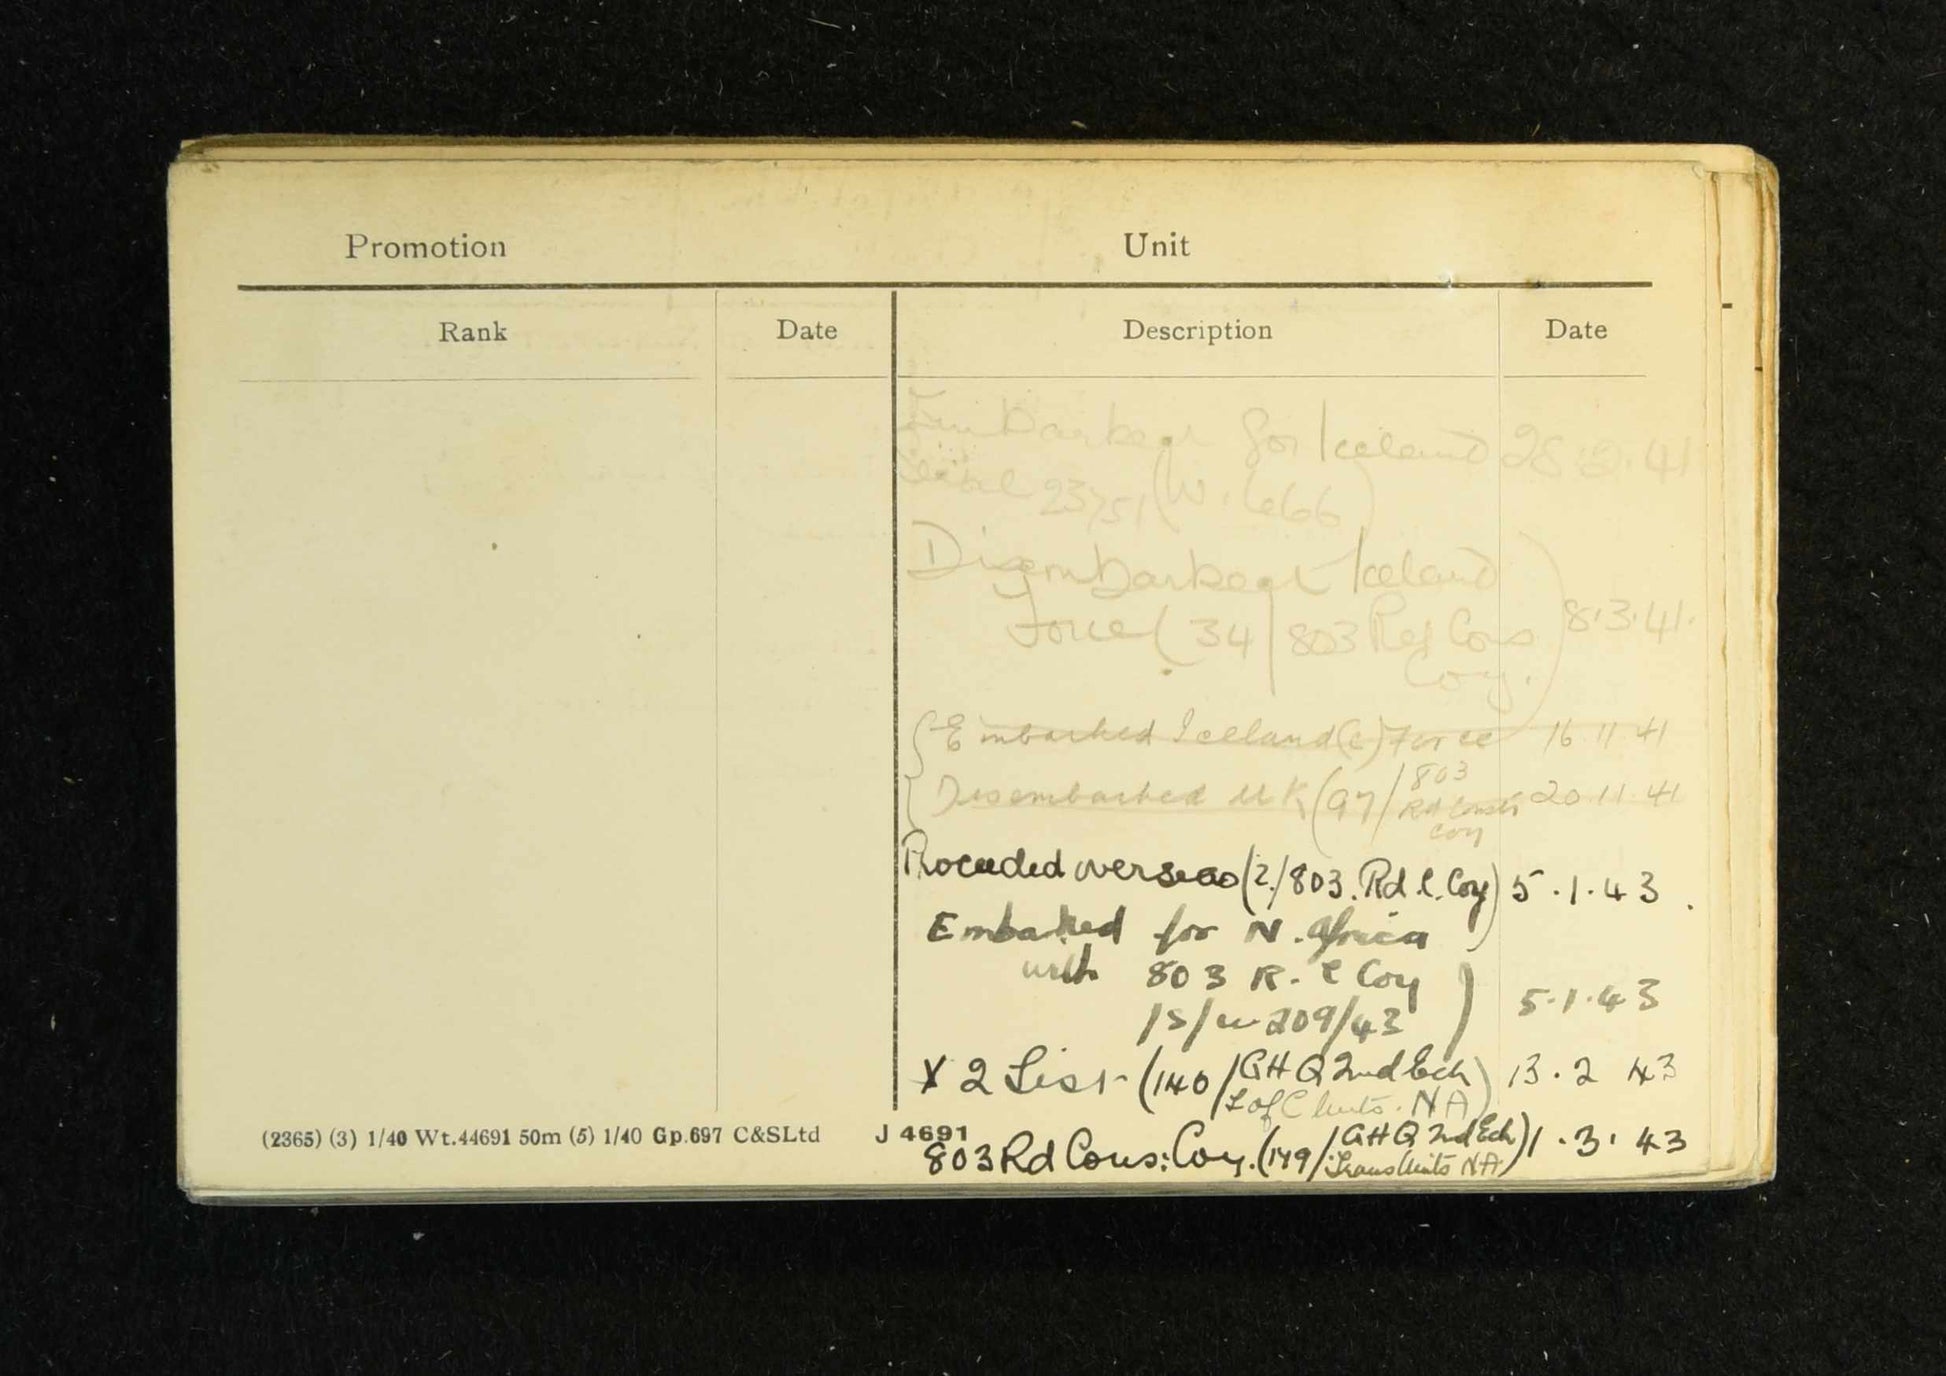 Promotion Unit
Rank Date Description Date
Embarked for Iceland 28.2.41
Serial 23751 (W. 666)
Disembarked Iceland
Force (34/803 Rd Cons 8.3.41.
Coy.)
Embarked Iceland (C) Force 16.11.41
Disembarked UK (97/803 20.11.41
Rd Constr
Coy
Proceeded overseas (2/803. Rd. C. Coy) 5.1.43.
Embarked for N. Africa
with 803 R. C Coy
209/43 5.1.43
X 2 List (140/GHQ 2nd Ech 13.2 43
L of C Units. NA)
(2365) (3) 1/40 Wt.44691 50m (5) 1/40 Gp.697 C&SLtd J 4691
803 Rd Cons: Coy. (149/GHQ 2nd Ech) 1.3.43
Trans Units NA